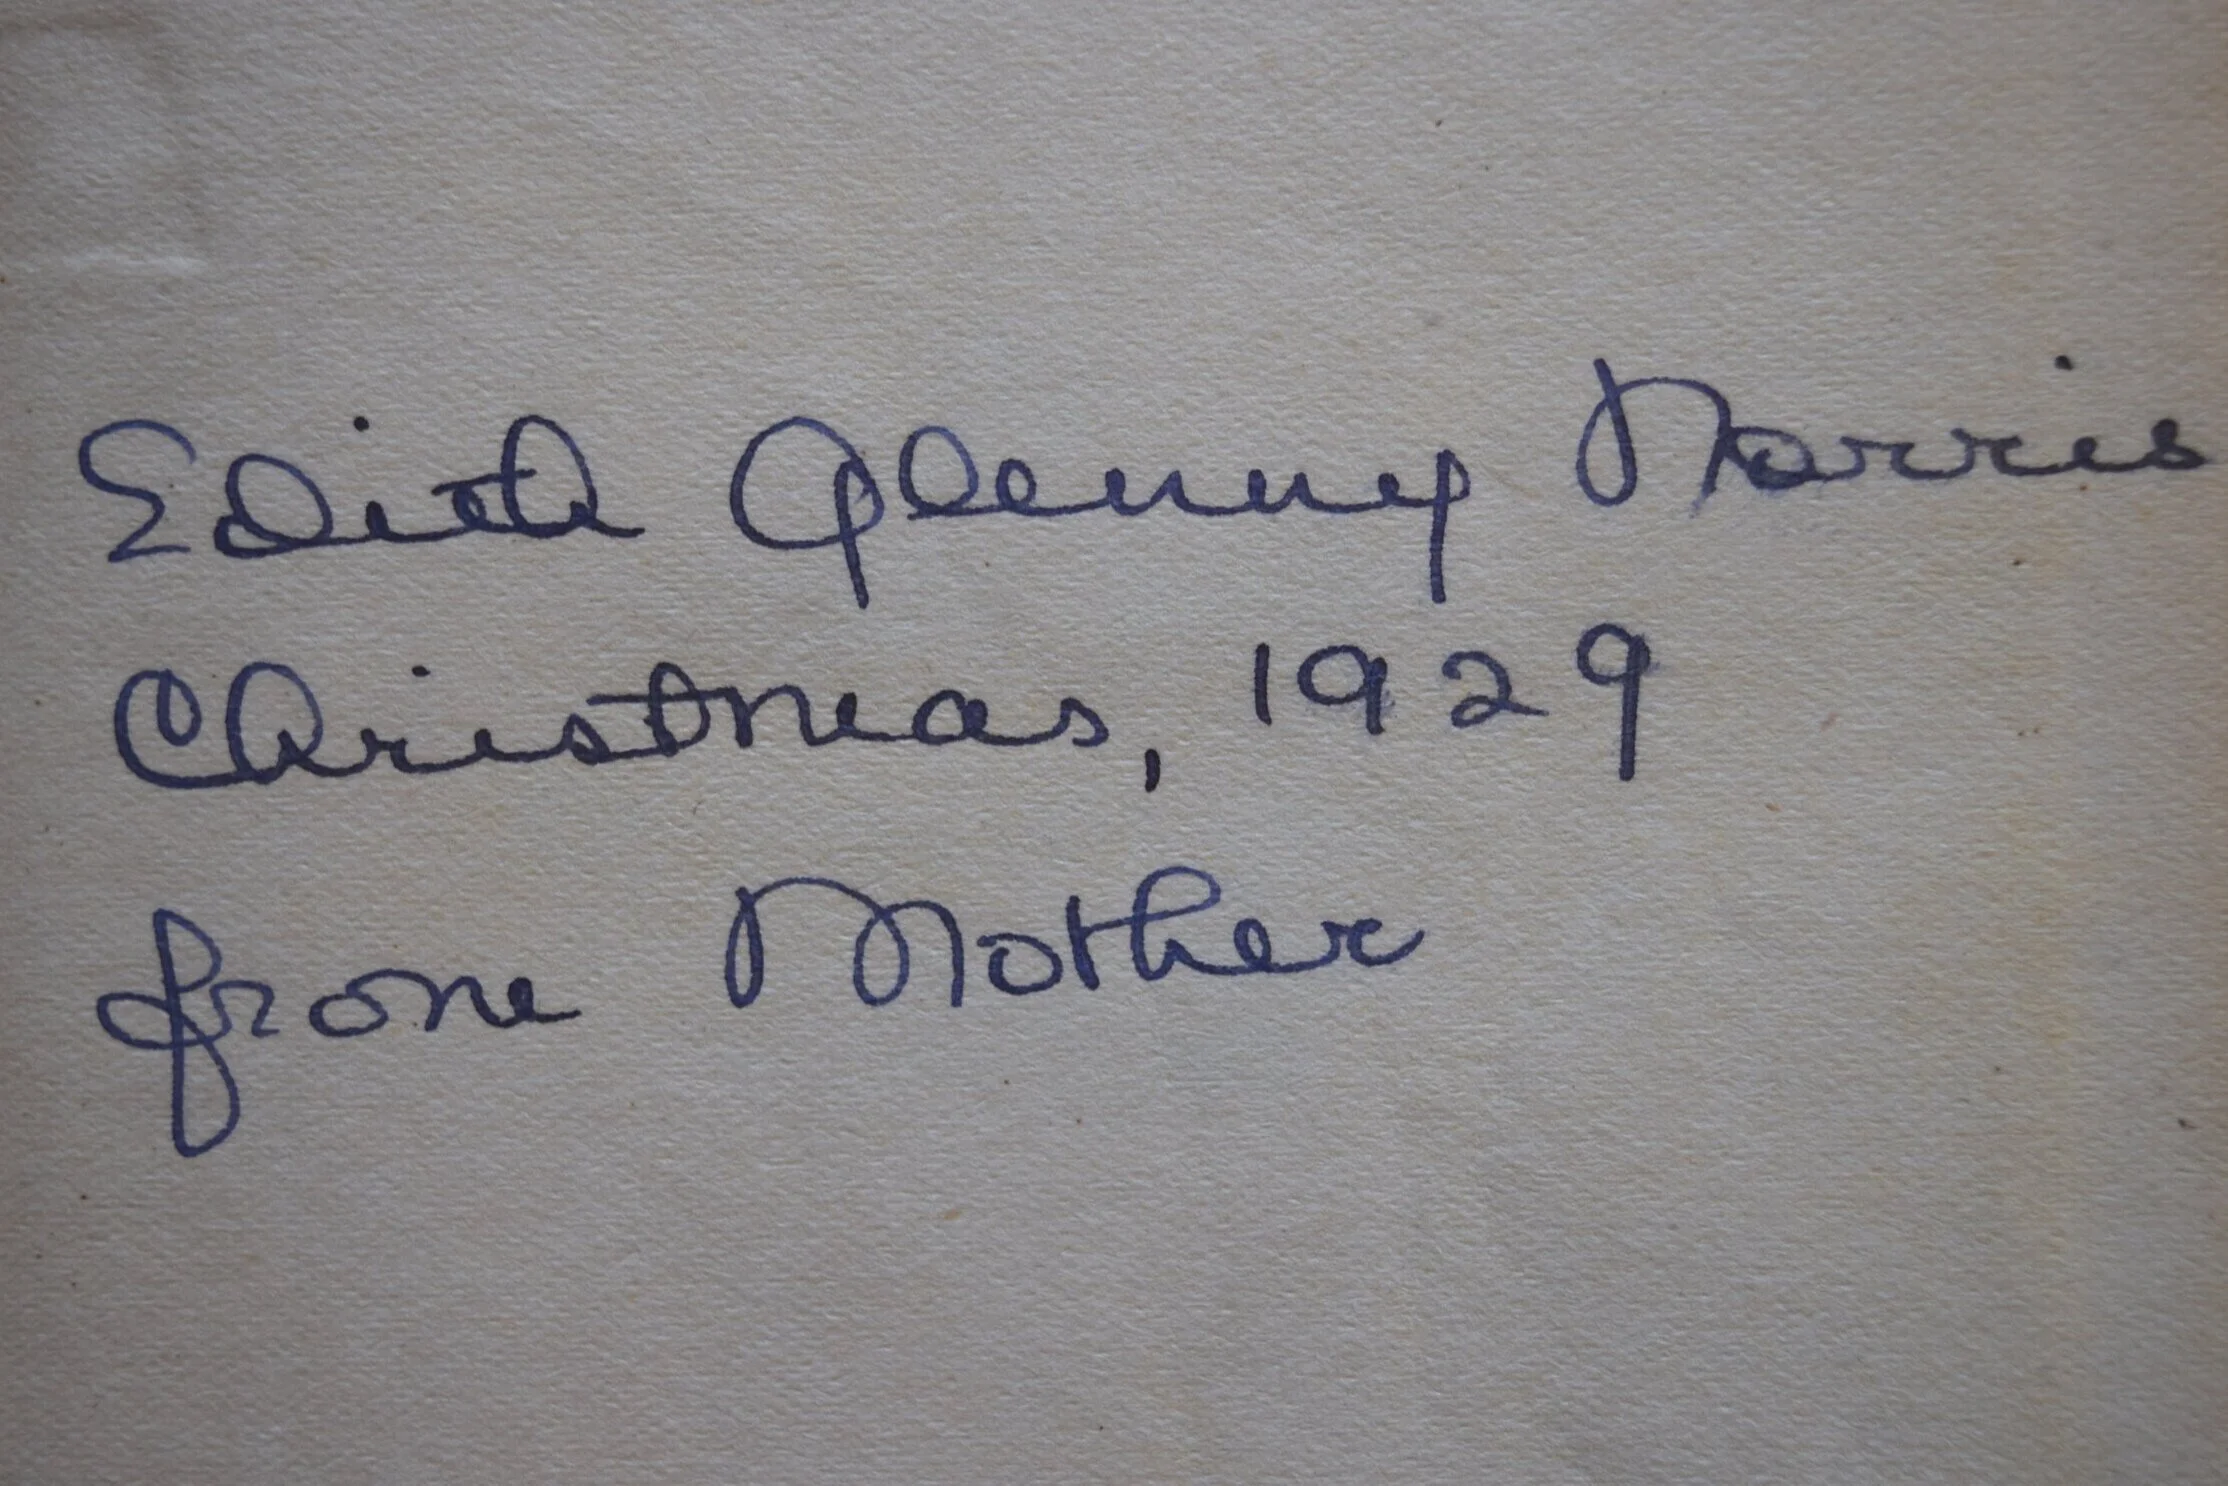 Edith Glenny Norris
Christmas, 1929
from Mother